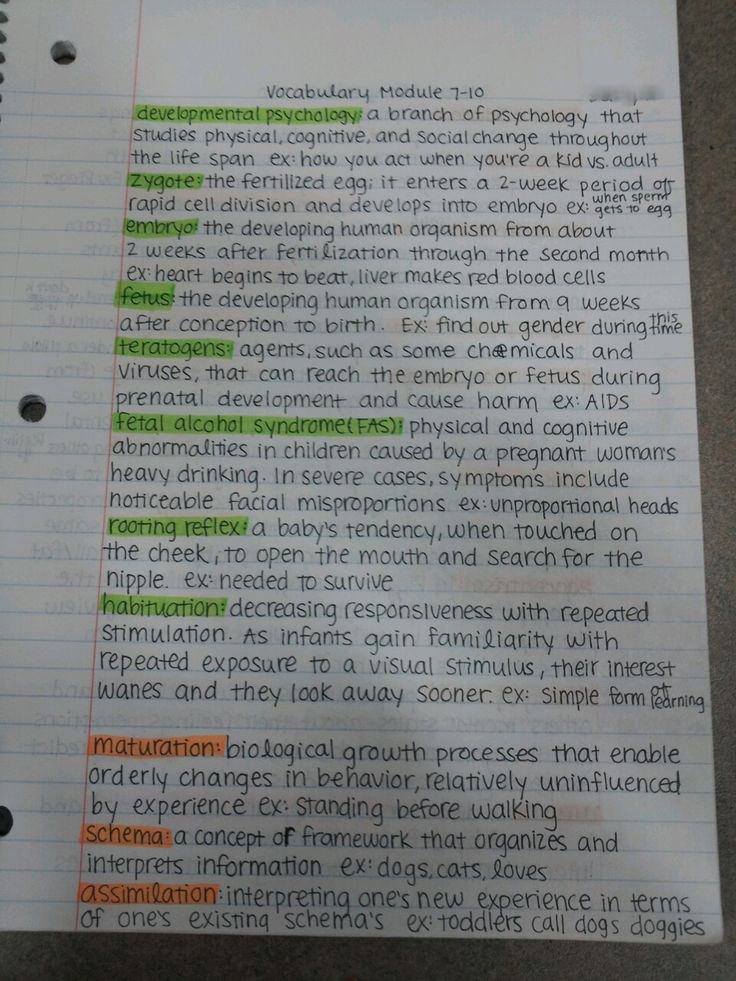 Vocabulary Module 7-10
developmental psychology: a branch of psychology that
studies physical, cognitive, and social change throughout
the life span ex: how you act when you're a kid vs. adult
zygote: the fertilized egg; it enters a 2-week period of
rapid cell division and develops into embryo ex: when sperm gets to egg
embryo: the developing human organism from about
2 weeks after fertilization through the second month
ex: heart begins to beat, liver makes red blood cells
fetus: the developing human organism from 9 weeks
after conception to birth. Ex: find out gender during this time
teratogens: agents, such as some chemicals and
viruses, that can reach the embryo or fetus during
prenatal development and cause harm ex: AIDS
fetal alcohol syndrome (FAS): physical and cognitive
abnormalities in children caused by a pregnant woman's
heavy drinking. In severe cases, symptoms include
noticeable facial misproportions ex: unproportional heads
rooting reflex: a baby's tendency, when touched on
the cheek, to open the mouth and search for the
nipple. ex: needed to survive
habituation: decreasing responsiveness with repeated
stimulation. As infants gain familiarity with
repeated exposure to a visual stimulus, their interest
wanes and they look away sooner. ex: simple form of learning
maturation: biological growth processes that enable
orderly changes in behavior, relatively uninfluenced
by experience ex: standing before walking
schema: a concept or framework that organizes and
interprets information ex: dogs, cats, loves
assimilation: interpreting one's new experience in terms
of one's existing schema's ex: toddlers call dogs doggies